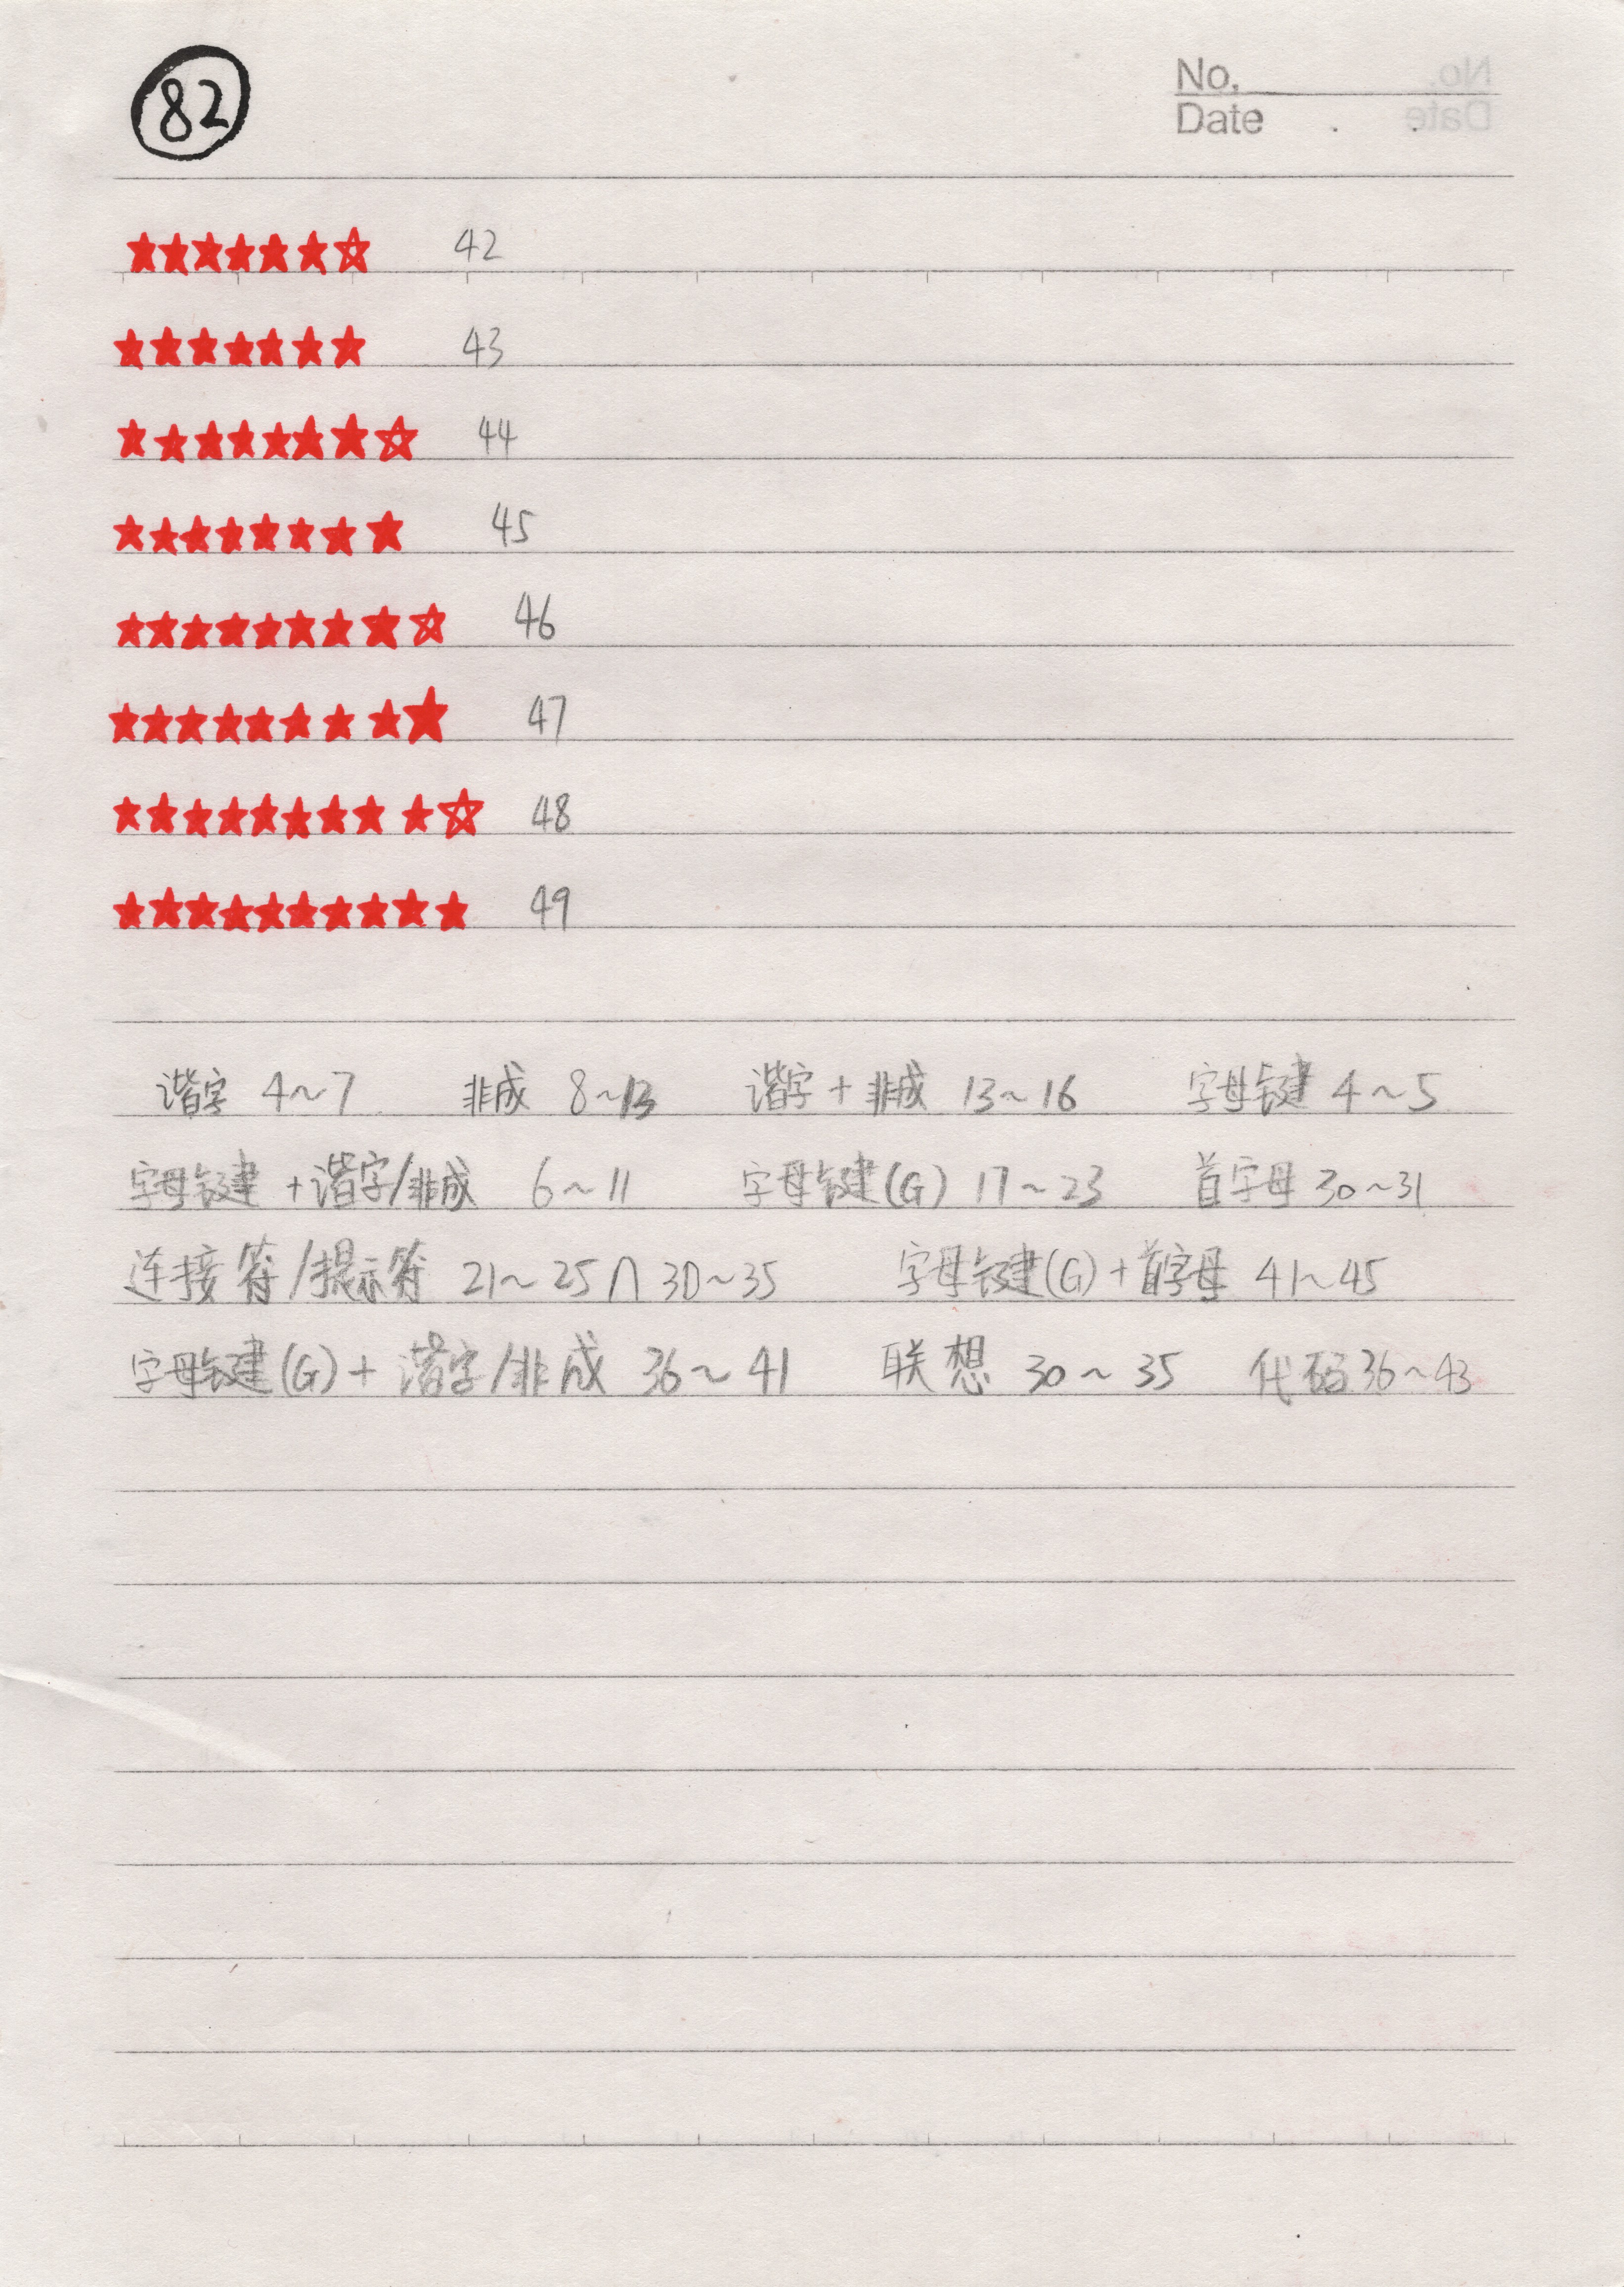 82
No.
Date . .
★★★★★★☆ 42
★★★★★★★ 43
★★★★★★★☆ 44
★★★★★★★★ 45
★★★★★★★★☆ 46
★★★★★★★★★ 47
★★★★★★★★★☆ 48
★★★★★★★★★★ 49
谐字 4~7 非成 8~13 谐字+非成 13~16 字母键 4~5
字母键+谐字/非成 6~11 字母键(G) 17~23 首字母 30~31
连接符/提示符 21~25∩30~35 字母键(G)+首字母 41~45
字母键(G)+谐字/非成 36~41 联想 30~35 代码 36~43